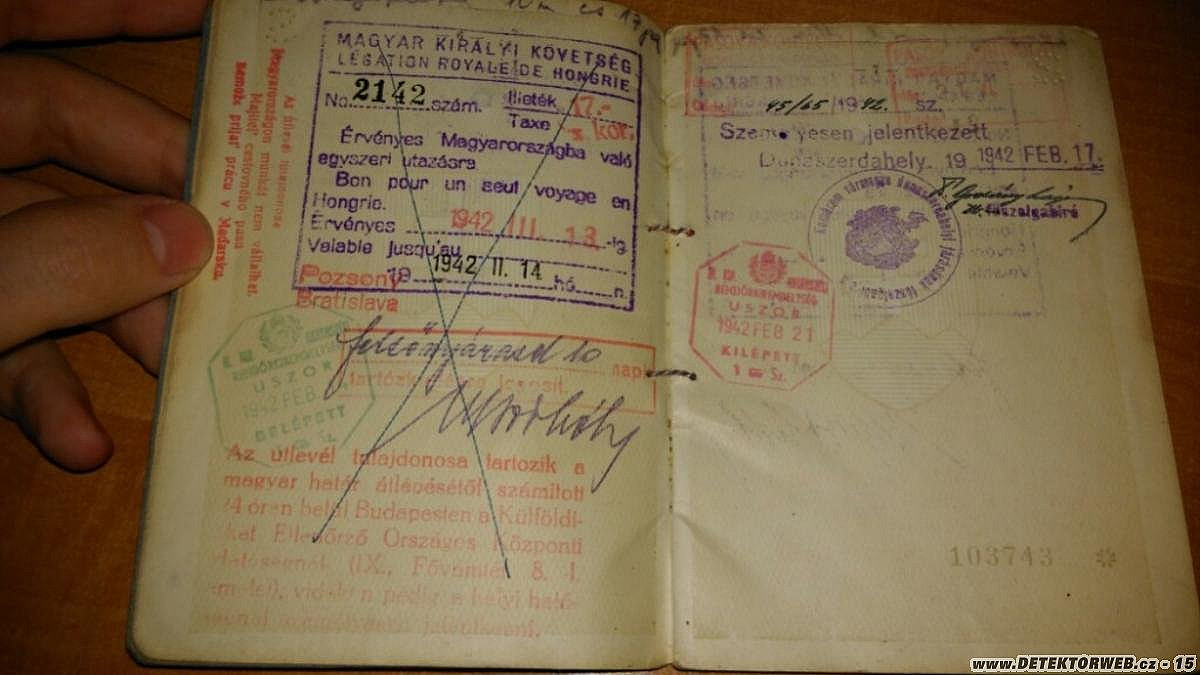 MAGYAR KIRÁLYI KÖVETSÉG
LÉGATION ROYALE DE HONGRIE
No. 2142 szám. Illeték 17.-
Taxe kor.
Érvényes Magyarországba való
egyszeri utazásra.
Bon pour un seul voyage en
Hongrie.
Érvényes 1942 III. 13.-ig
Valable jusqu'au
Pozsony 19 1942 II. 14 hó n.
Bratislava
felsőnyárasd 10 nap
tartózkodásra jogosít.
Az útlevél tulajdonosa
Magyarországon munkát nem vállalhat.
Majiteľ cestovného pasu
nemože prijať prácu v Maďarsku.
USZOR
1942 FEB.
BELÉPETT
Sz.
Az útlevél tulajdonosa tartozik a
magyar határ átlépésétől számított
24 órán belül Budapesten a Külföldi-
ket Ellenőrző Országos Központi
Hatóságnál (IX., Fővámtér 8. I.
emelet), vidéken pedig a helyi ható-
ságnál személyesen jelentkezni.
45/65/1942. sz.
Személyesen jelentkezett
Dunaszerdahely. 19 1942 FEB. 17.
főszolgabíró
USZOR
1942 FEB 21
KILÉPETT
1 Sz.
103743 *
www.DETEKTORWEB.cz - 15